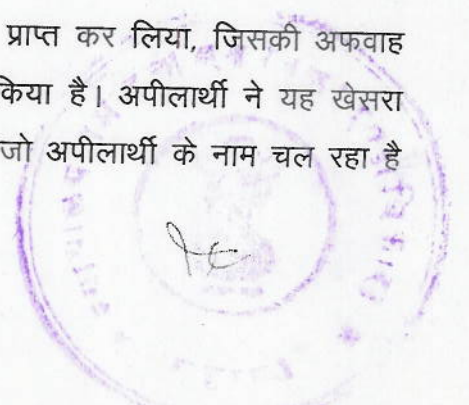 प्राप्त कर लिया, जिसकी अफवाह
किया है। अपीलार्थी ने यह खेसरा
जो अपीलार्थी के नाम चल रहा है